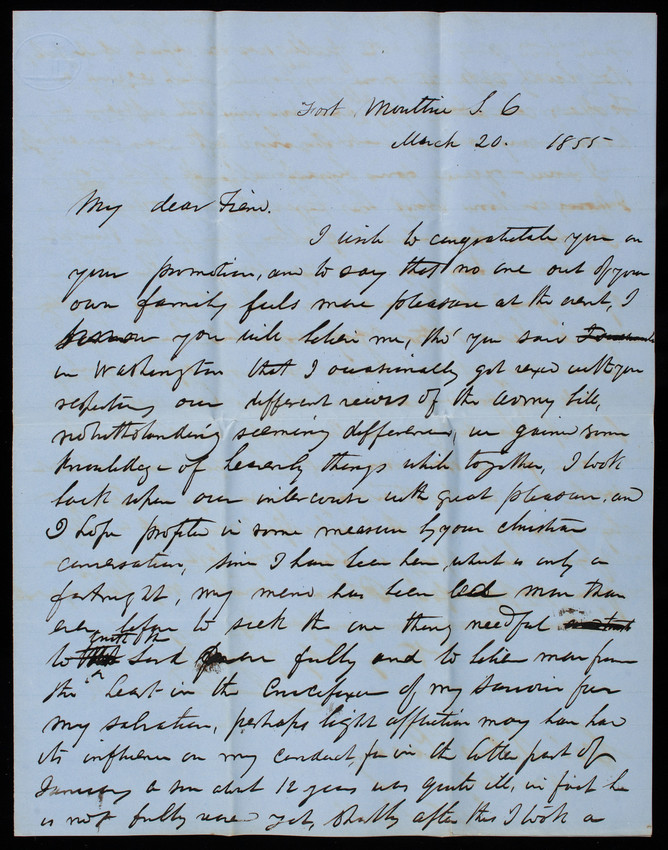 Fort Moultrie S C
March 20. 1855
My dear Friend.
I wish to congratulate you on
your promotion, and to say that no one out of your
own family feels more pleasure at the event, I
know you will believe me, tho' you said
in Washington that I occasionally got vexed with you
respecting our different views of the Army bill,
notwithstanding seeming difference, we gained some
knowledge of heavenly things while together, I look
back upon our intercourse with great pleasure, and
I hope profited in some measure by your christian
conversation, since I have been here, which is only a
fortnight, my mind has been led more than
ever before to seek the one thing needful
to the Lord more fully and to believe more from
the heart in the Crucifixion of my Saviour for
my salvation, perhaps light affliction may have had
its influence on my conduct, for in the latter part of
January a son about 12 years was quite ill, in fact he
is not fully well yet, Shortly after this I took a